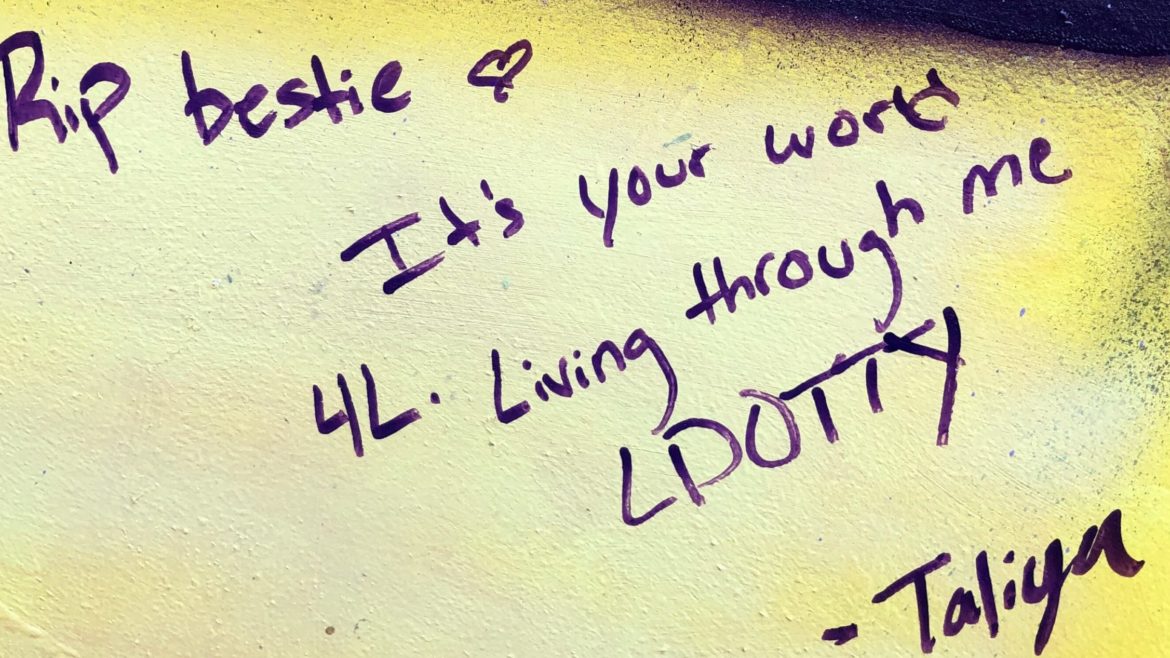 Rip bestie ♡
It's your world
4L. Living through me
LDOTTY
- Taliya